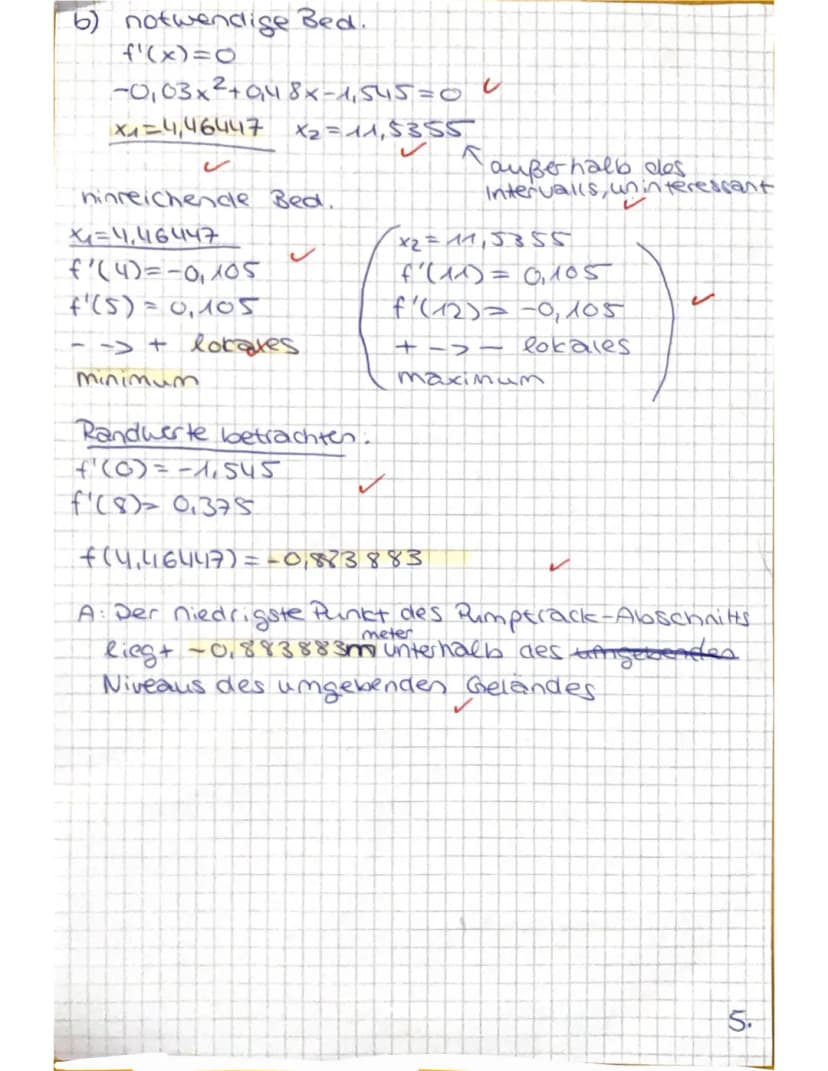 b) notwendige Bed.
f'(x)=0
-0,03x²+0,48x-1,545=0
x₁=4,46447 x₂=11,5355
außerhalb des
Intervalls, uninteressant
hinreichende Bed.
x₁=4,46447
f'(4)=-0,105
f'(5)=0,105
- -> + lokales
minimum
x₂=11,5355
f'(11)=0,105
f'(12)=-0,105
+ -> - lokales
maximum
Randwerte betrachten:
f'(0)=-1,545
f'(8)=0,375
f(4,46447)=-0,883883
A: Der niedrigste Punkt des Pumptrack-Abschnitts
meter
liegt -0,883883m unterhalb des umgebenden
Niveaus des umgebenden Geländes
5.